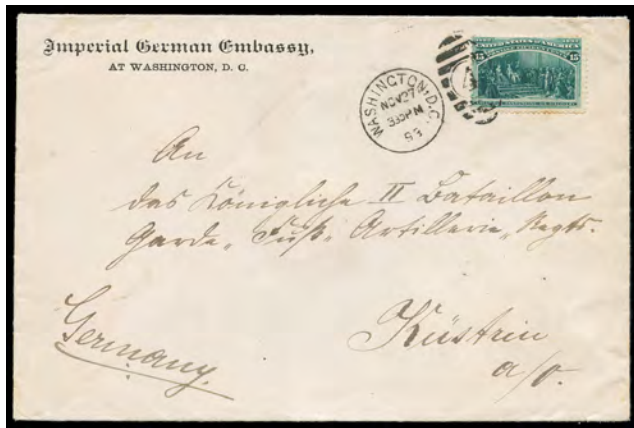 Imperial German Embassy,
AT WASHINGTON, D. C.
WASHINGTON, D.C.
NOV 27
93
UNITED STATES OF AMERICA
15 15
An
das Königliche II Bataillon
Garde-Fuß-Artillerie-Regts.
Küstrin
a/o.
Germany.